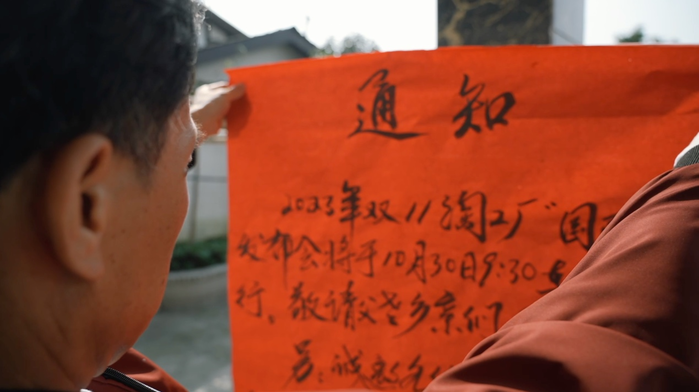 通知
2023年双11"淘工厂"国
发布会将于10月30日9:30
行。敬请父老乡亲们
另：诚邀